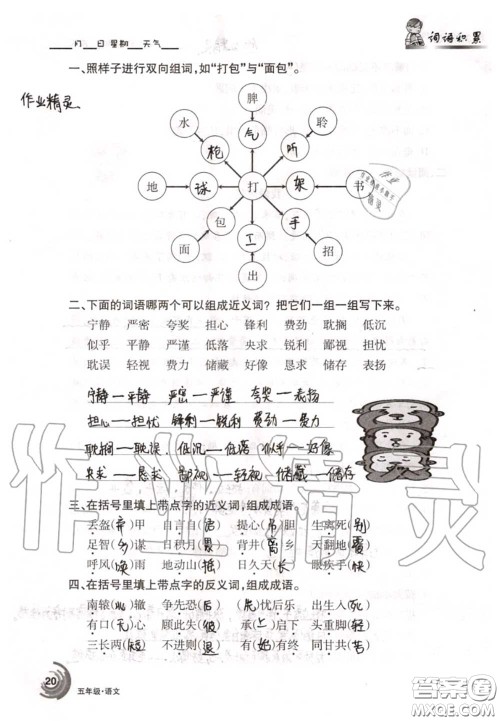 ____月____日 星期____天气____
词语积累
一、照样子进行双向组词,如“打包”与“面包”。
作业精灵
脾
水 气 聆
枪 听
地 球 打 架 书
包 手
面 工 招
出
二、下面的词语哪两个可以组成近义词?把它们一组一组写下来。
宁静 严密 夸奖 担心 锋利 费劲 耽搁 低沉
似乎 平静 严谨 低落 央求 锐利 鄙视 担忧
耽误 轻视 费力 储藏 好像 恳求 储存 表扬
宁静—平静 严密—严谨 夸奖—表扬
担心—担忧 锋利—锐利 费劲—费力
耽搁—耽误 低沉—低落 似乎—好像
央求—恳求 鄙视—轻视 储藏—储存
三、在括号里填上带点字的近义词,组成成语。
丢盔(弃)甲 自言自(语) 提心(吊)胆 生离死(别)
足智(多)谋 日积月(累) 背井(离)乡 天翻地(覆)
呼风(唤)雨 地动山(摇) 日久天(长) 眼疾手(快)
四、在括号里填上带点字的反义词,组成成语。
南辕(北)辙 争先恐(后) (先)忧后乐 出生入(死)
有口(无)心 顾此失(彼) 承(上)启下 头重脚(轻)
三长两(短) 不进则(退) 有(始)有终 同甘共(苦)
20
五年级·语文
作业精灵
答案圈
MXQE.COM